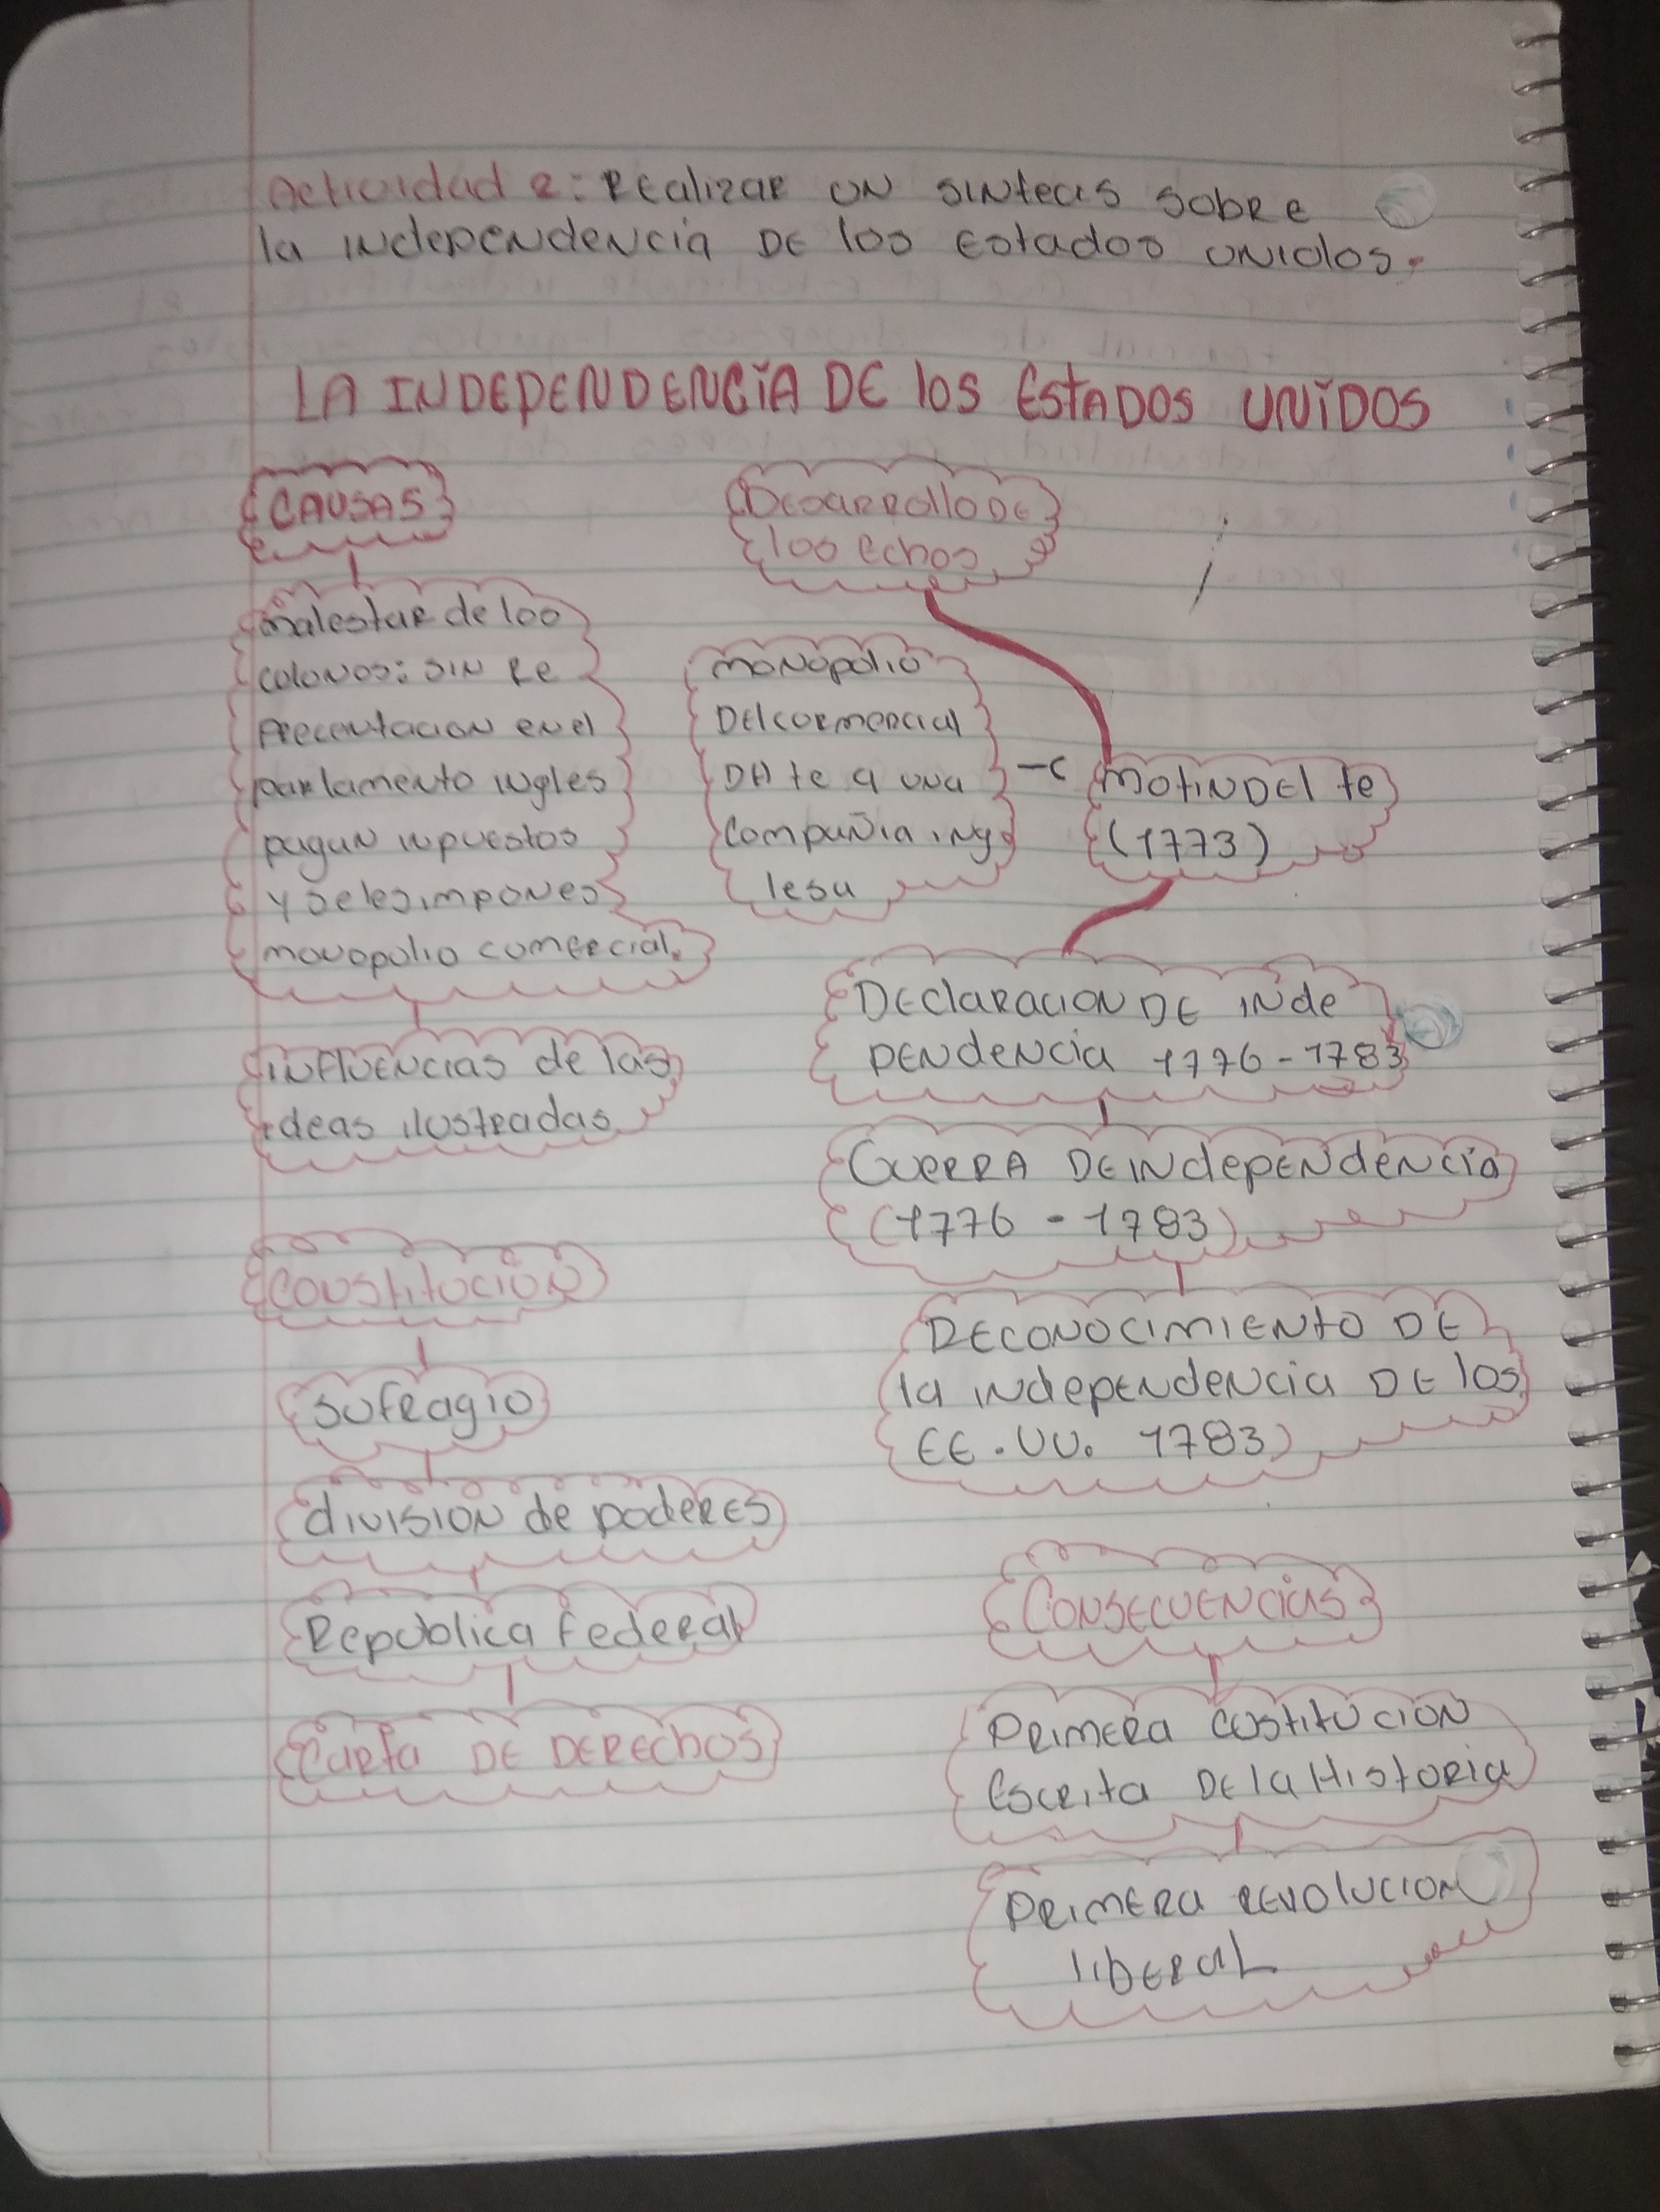 Actividad 2: Realizar un sintecis sobre
la independencia de los Estados Unidos.
LA INDEPENDENCIA DE los EStADOS UNIDOS
CAUSAS
malestar de los
colonos: sin re
precentacion en el
parlamento ingles
pagan inpuestos
y se les impones
monopolio comercial.
influencias de las
ideas ilustradas
Desarrollo de
los echos
monopolio
Del cormercial
DA te a una
Compañia ing
lesa
Motin Del te
(1773)
Declaracion de inde
pendencia 1776-1783
Guerra de independencia
(1776 - 1783)
Reconocimiento de
la independencia de los
EE.UU. 1783)
Constitución
Sufragio
división de poderes
Republica federal
Carta de Derechos
Consecuencias
Primera costitucion
Escrita de la Historia
Primera revolucion
liberal